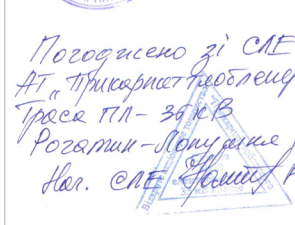 Погоджено зі СЛЕ
АТ „Прикарпаттяоблене
Траса ПЛ-35 кВ
Рогатин-Лопушня
Нач. СЛЕ